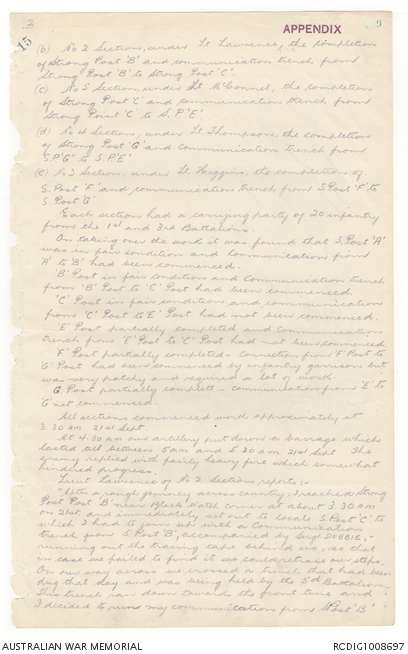 2
APPENDIX
9
15
(b) No 2 Section, under Lt Lawrence, the completion
of Strong Post 'B' and communication trench from
Strong Post 'B' to Strong Post 'C'.
(c) No 5 Section under Lt McConnel, the completion
of Strong Post 'C' and communication trench from
Strong Point 'C' to S.P. 'E'
(d) No 4 Section, under Lt Thompson, the completion
of Strong Post 'G' and communication trench from
S.P. 'G' to S.P. 'E'
(e) No 3 Section under Lt. Higgins, the completion of
S. Post 'F' and communication trench from S. Post 'F' to
S. Post 'G'
Each section had a carrying party of 20 infantry
from the 1st and 3rd Battalions.
On taking over the work it was found that S. Post 'A'
was in fair condition and communication from
'A' to 'B' had been commenced.
'B' Post in fair condition and communication trench
from 'B' Post to 'C' Post had been commenced.
'C' Post in fair condition and communication
from 'C' Post to 'E' Post had not been commenced.
'E' Post partially completed and communication
trench from 'E' Post to 'C' Post had not been commenced
'F' Post partially completed - connection from 'F' Post to
'G' Post had been commenced by infantry garrison but
was very patchy and required a lot of work
G. Post partially complete - communication from 'E' to
'G' not commenced.
All sections commenced work approximately at
3.30 am 21st Sept.
At 4.30 am our artillery put down a barrage which
lasted till between 5 am and 5.30 am 21st Sept. The
enemy replied with fairly heavy fire which somewhat
hindred progress.
Lieut Lawrence of No 2 Section reports:-
"After a rough journey across country, I reached Strong
Post Post 'B' near Black Watch corner at about 3.30 am
on 21st and immediately went to locate S. Post 'C' to
which I had to join up with a communication
trench from S. Post 'B', accompanied by Sergt DOBBIE,
running out the tracing tape behind us, so that
in case we failed to find it we could retrace our steps.
On our way across we crossed a trench that had been
dug that day and was being held by the 5d Battalion.
This trench ran down toward the front line and
I decided to run my communication from S. Post 'B'
AUSTRALIAN WAR MEMORIAL
RCDIG1008697